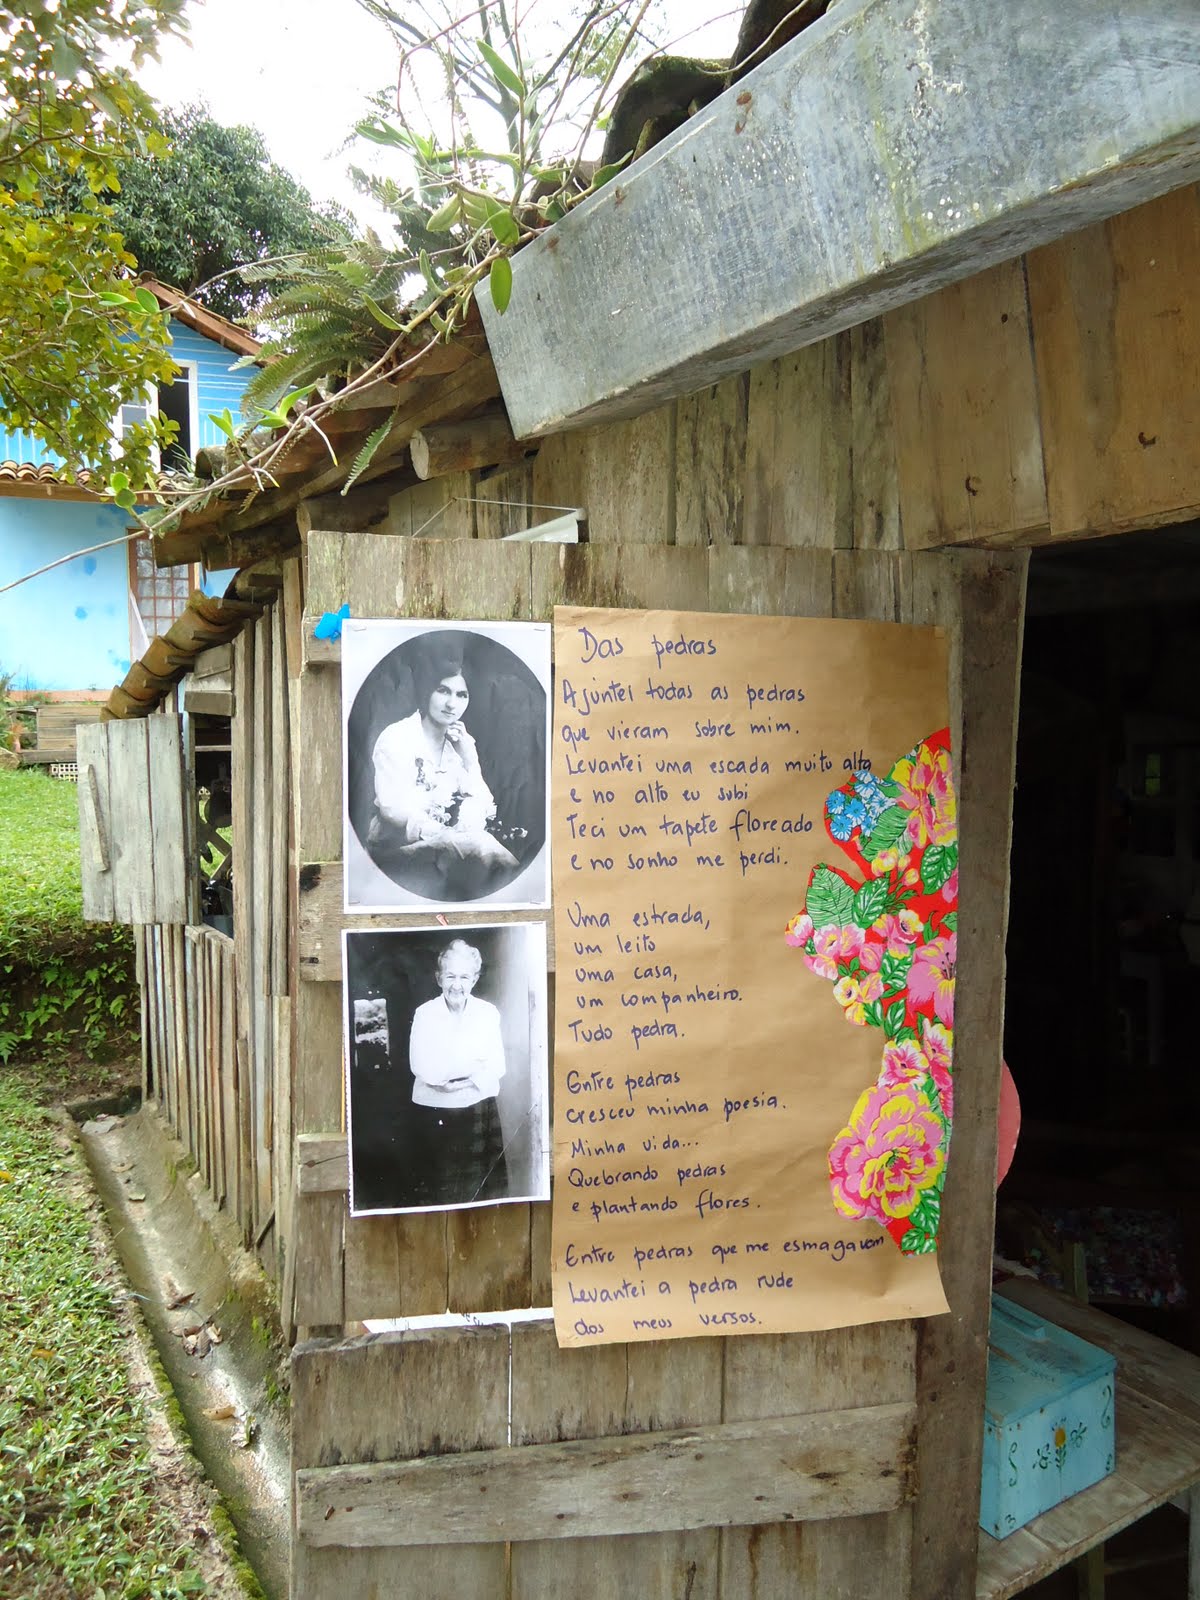 Das pedras
Ajuntei todas as pedras
que vieram sobre mim.
Levantei uma escada muito alta
e no alto eu subi
Teci um tapete floreado
e no sonho me perdi.
Uma estrada,
um leito
uma casa,
um companheiro.
Tudo pedra.
Entre pedras
cresceu minha poesia.
Minha vida...
Quebrando pedras
e plantando flores.
Entre pedras que me esmagavam
Levantei a pedra rude
dos meus versos.